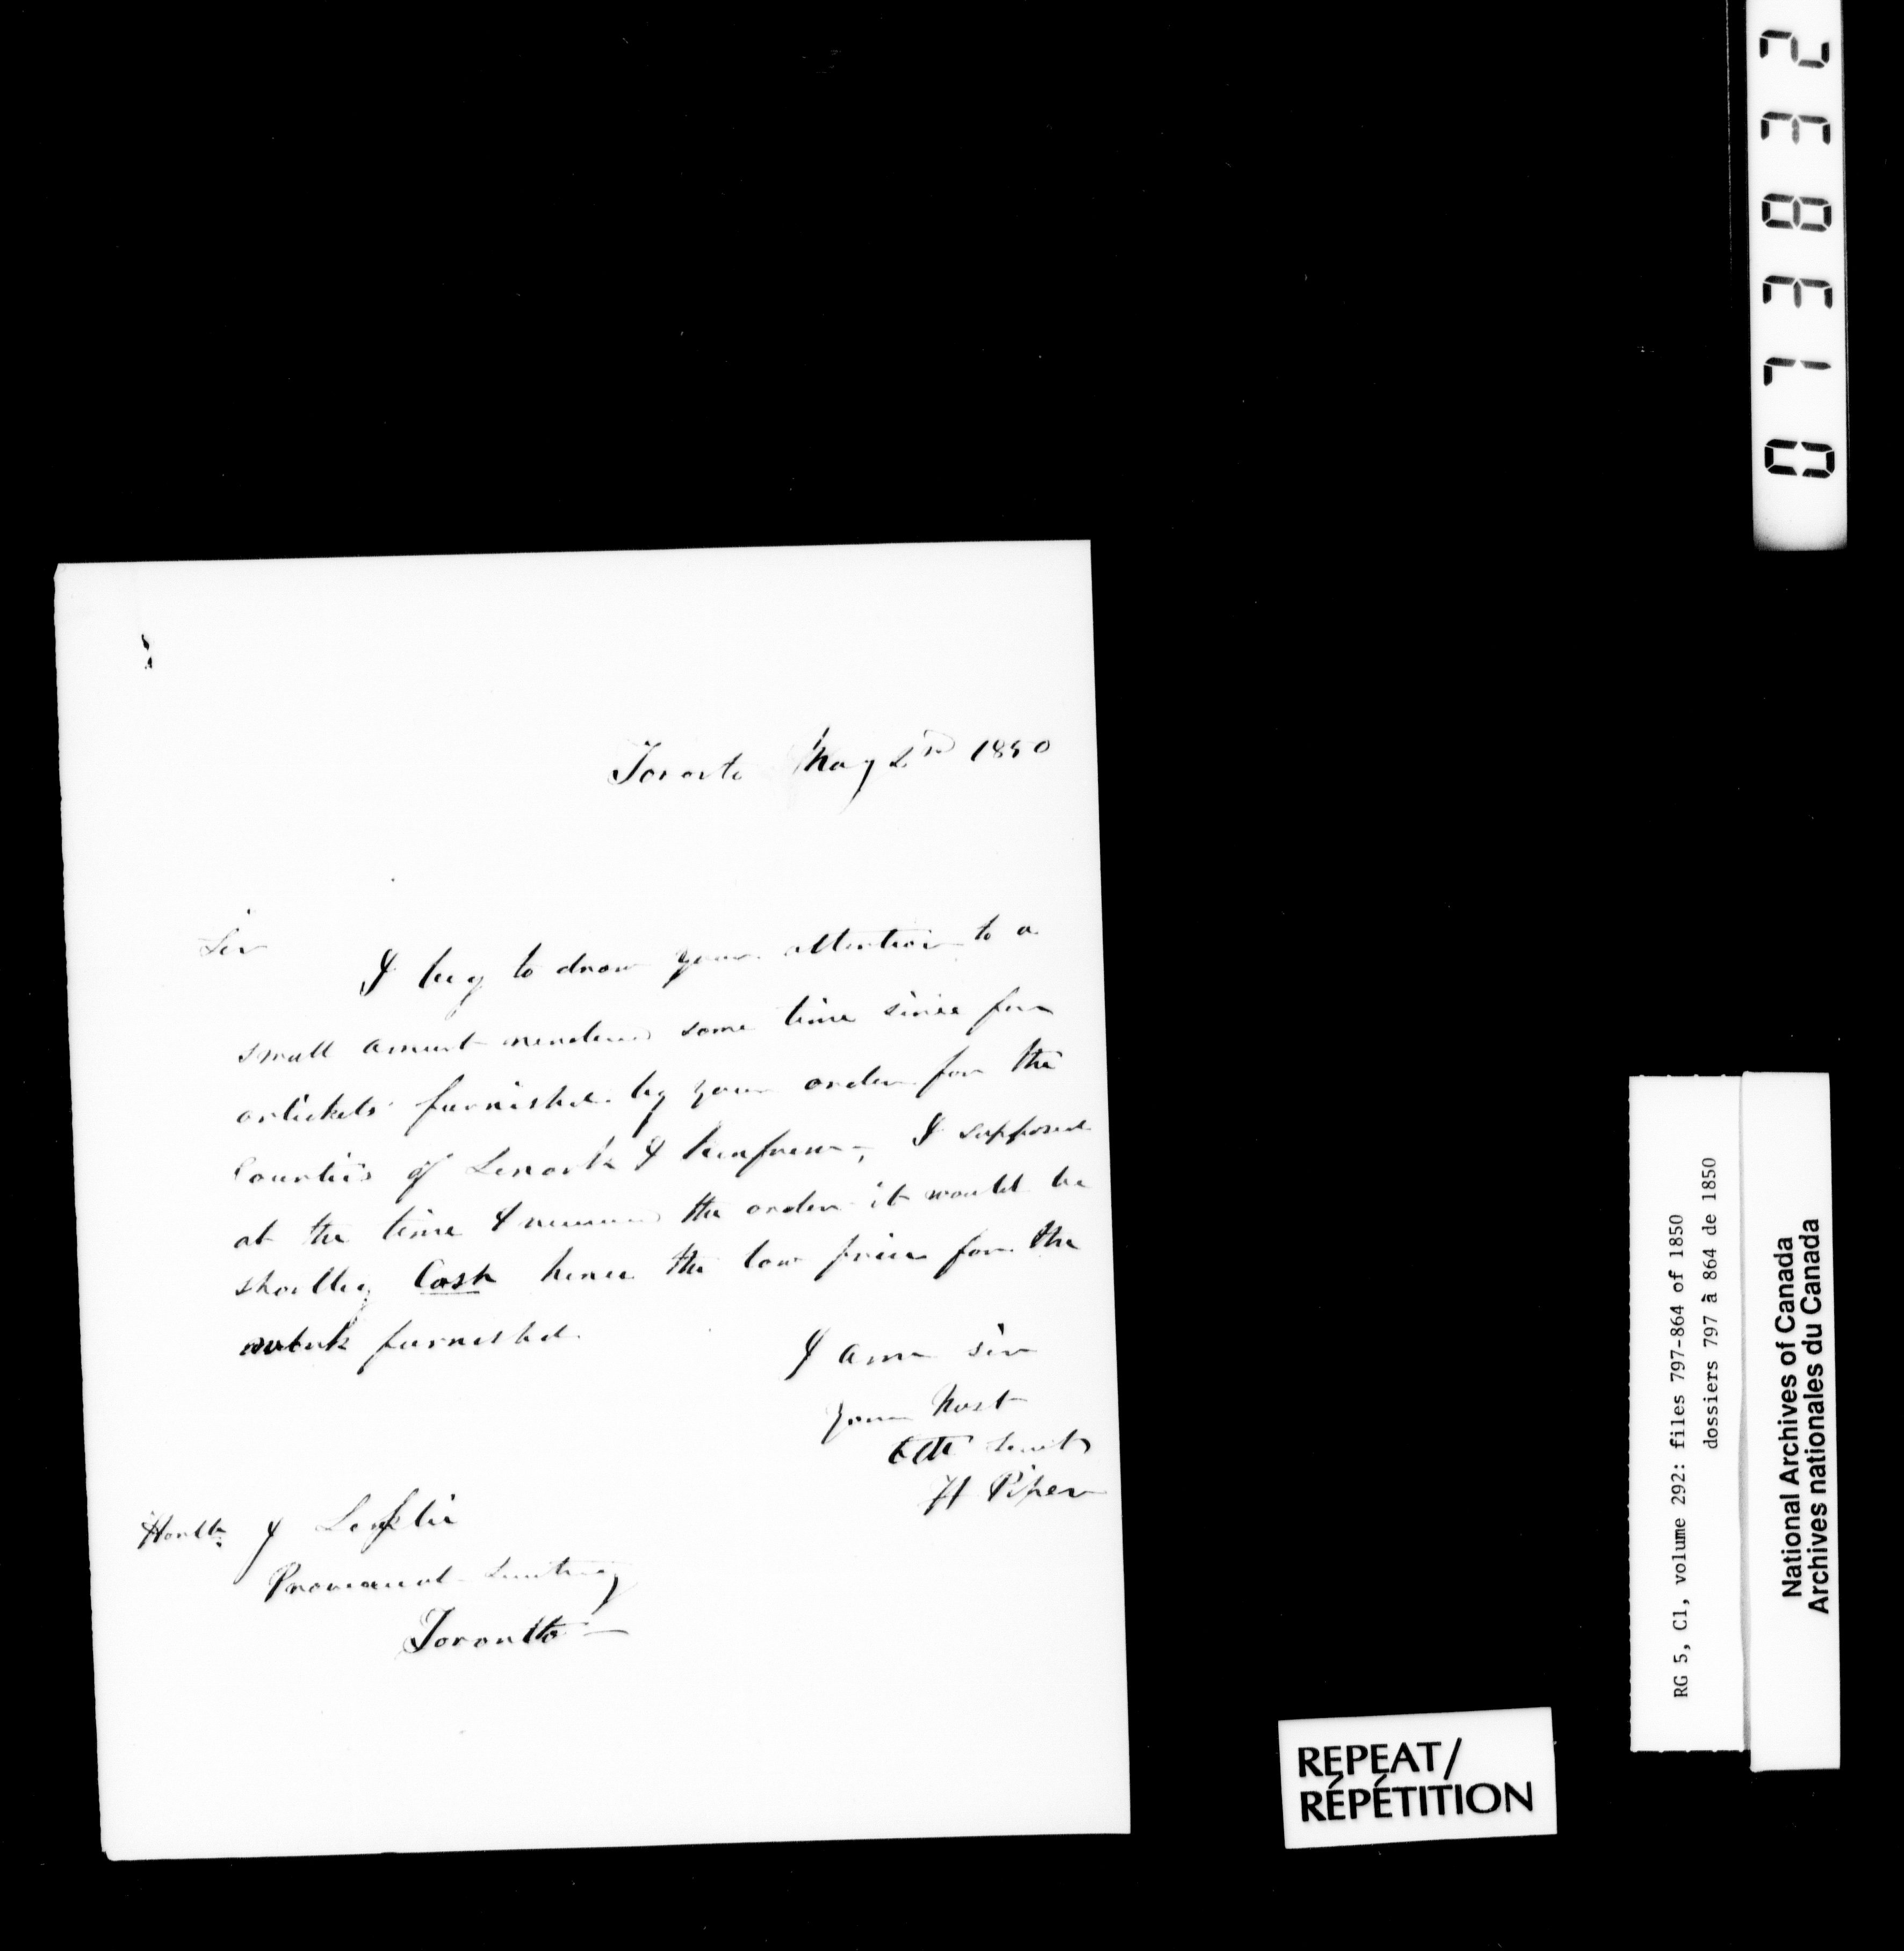 Toronto May 2nd 1850
Sir
I beg to draw your attention to a
small amount rendered some time since for
artickels furnished by your order for the
Counties of Lenark & Renfrew, I supposed
at the time I received the order it would be
shortley Cash hence the low price for the
furnished.
I am sir
your Most
Obt Servt
H Piper
Honble J Leslie
Provincial Secretary
Toronto
REPEAT/
RÉPÉTITION
RG 5, C1, volume 292: files 797-864 of 1850
dossiers 797 à 864 de 1850
National Archives of Canada
Archives nationales du Canada
013832